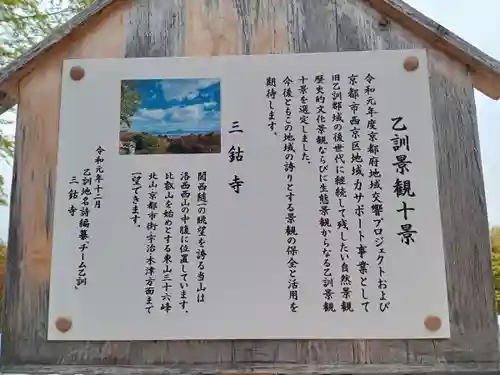 乙訓景観十景
令和元年度京都府地域交響プロジェクトおよび
京都市西京区地域力サポート事業として
旧乙訓郡域の後世代に継続して残したい自然景観
歴史的文化景観ならびに生態景観からなる乙訓景観
十景を選定しました。
今後ともこの地域の誇りとする景観の保全と活用を
期待します。
三鈷寺
関西随一の眺望を誇る当山は
洛西西山の中腹に位置しています。
比叡山を始めとする東山三十六峰
北山・京都市街・宇治・木津方面まで
一望できます。
令和元年十二月
乙訓地名詩編纂「チーム乙訓」
三鈷寺